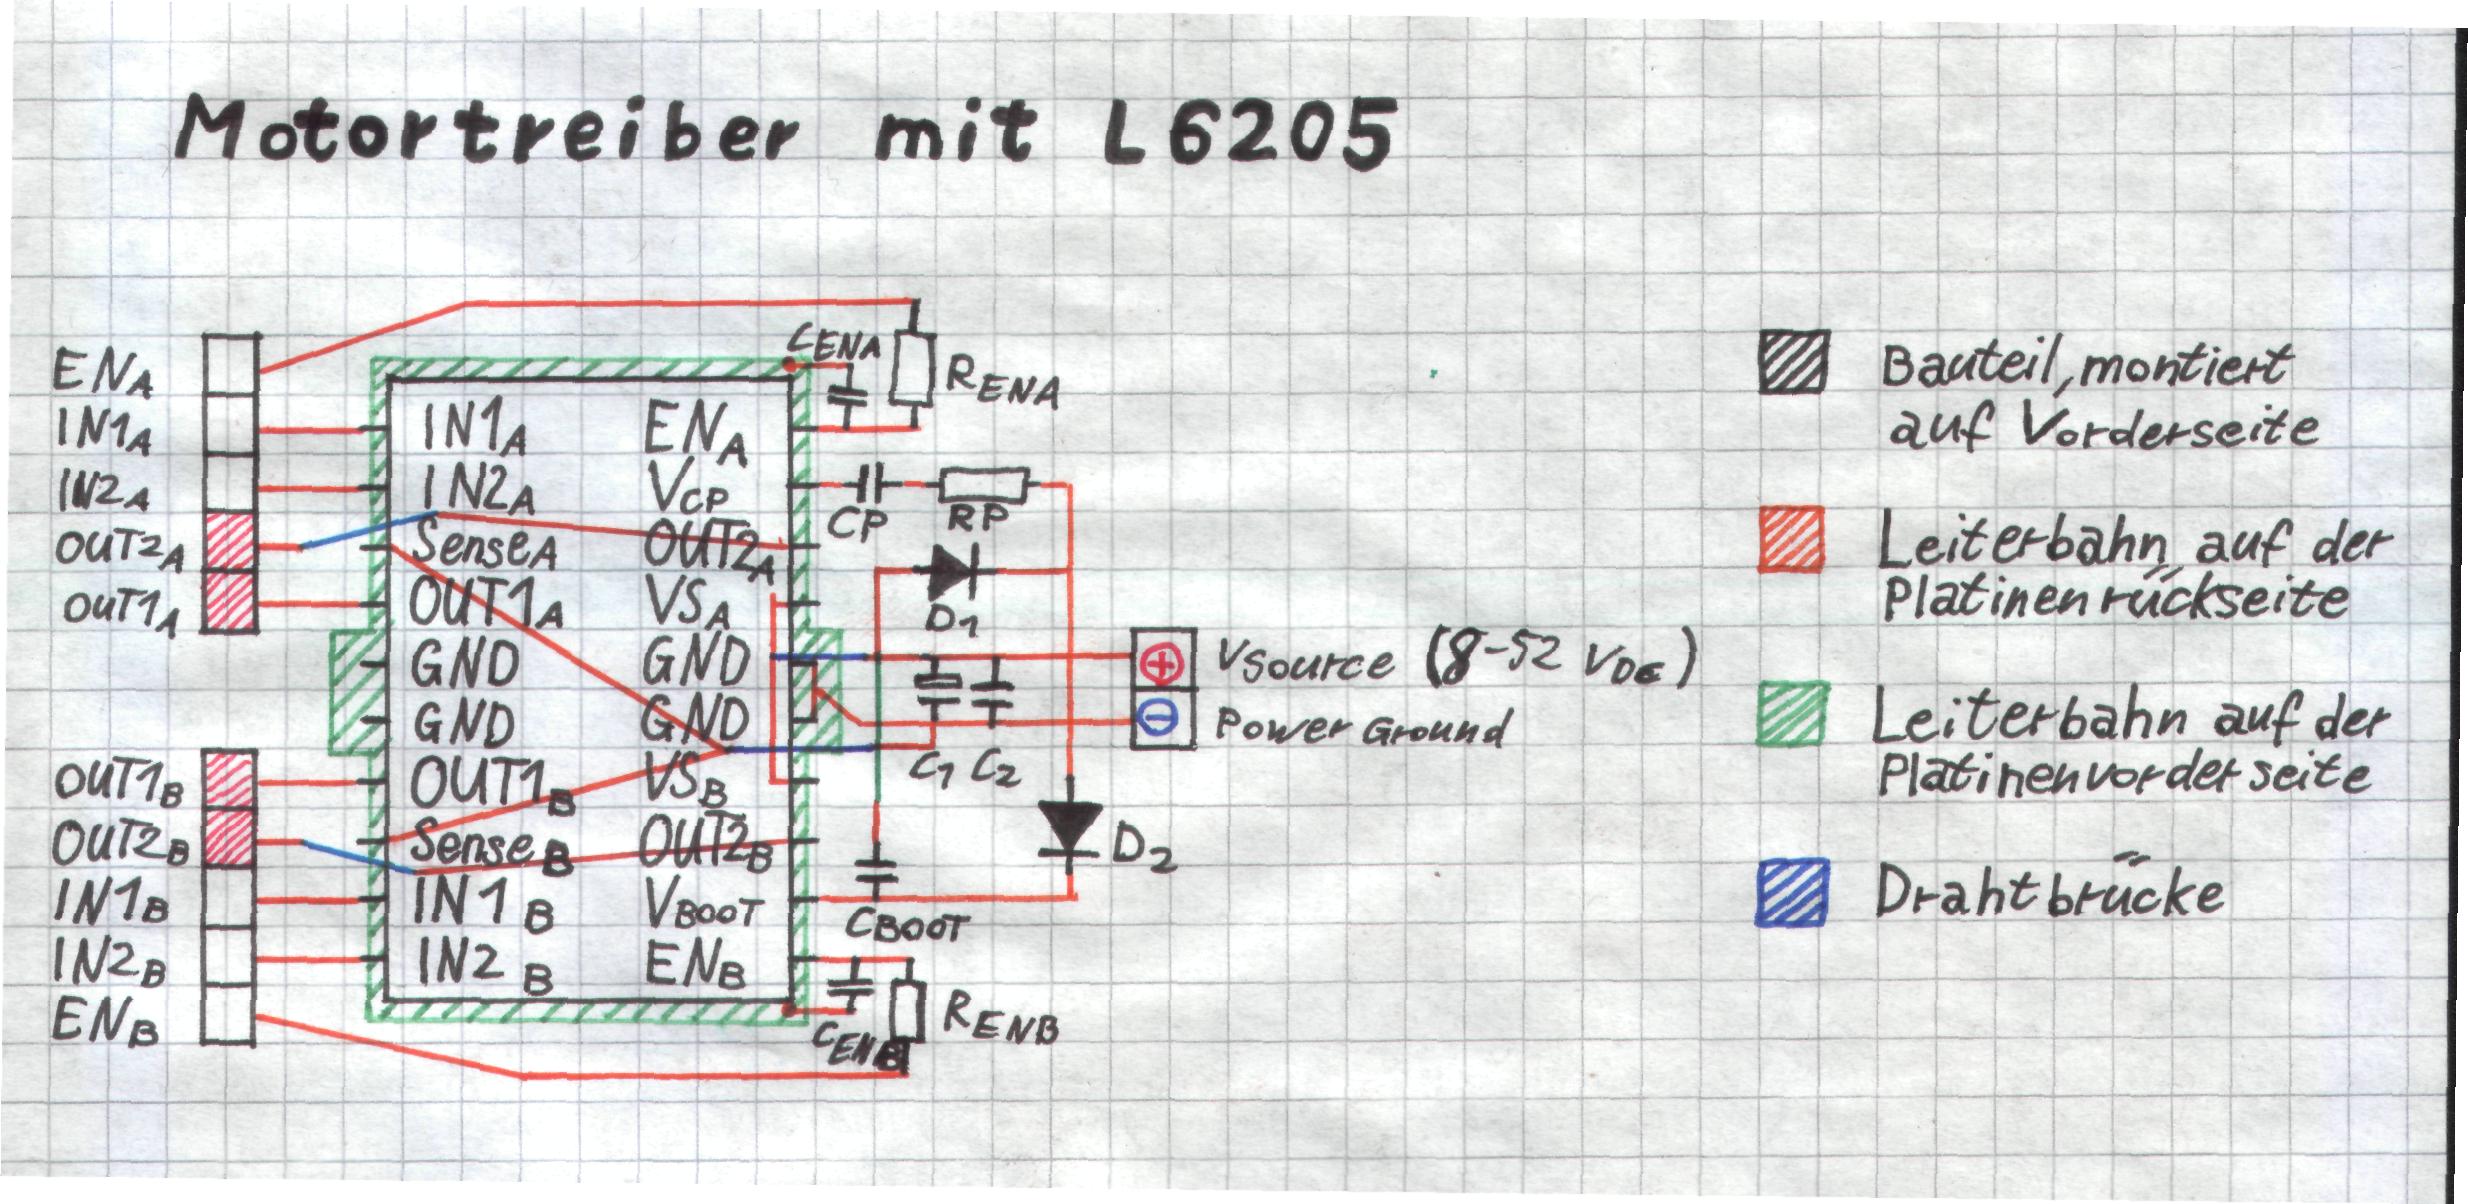 Motortreiber mit L6205
ENA
IN1A
IN2A
OUT2A
OUT1A
OUT1B
OUT2B
IN1B
IN2B
ENB
IN1A ENA
IN2A VCP
SenseA OUT2A
OUT1A VSA
GND GND
GND GND
OUT1B VSB
SenseB OUT2B
IN1B VBOOT
IN2B ENB
CENA
RENA
CP RP
D1
C1 C2
D2
CBOOT
CENB
RENB
+ VSource (8-52 VDC)
- Power Ground
Bauteil, montiert
auf Vorderseite
Leiterbahn auf der
Platinenrückseite
Leiterbahn auf der
Platinenvorderseite
Drahtbrücke